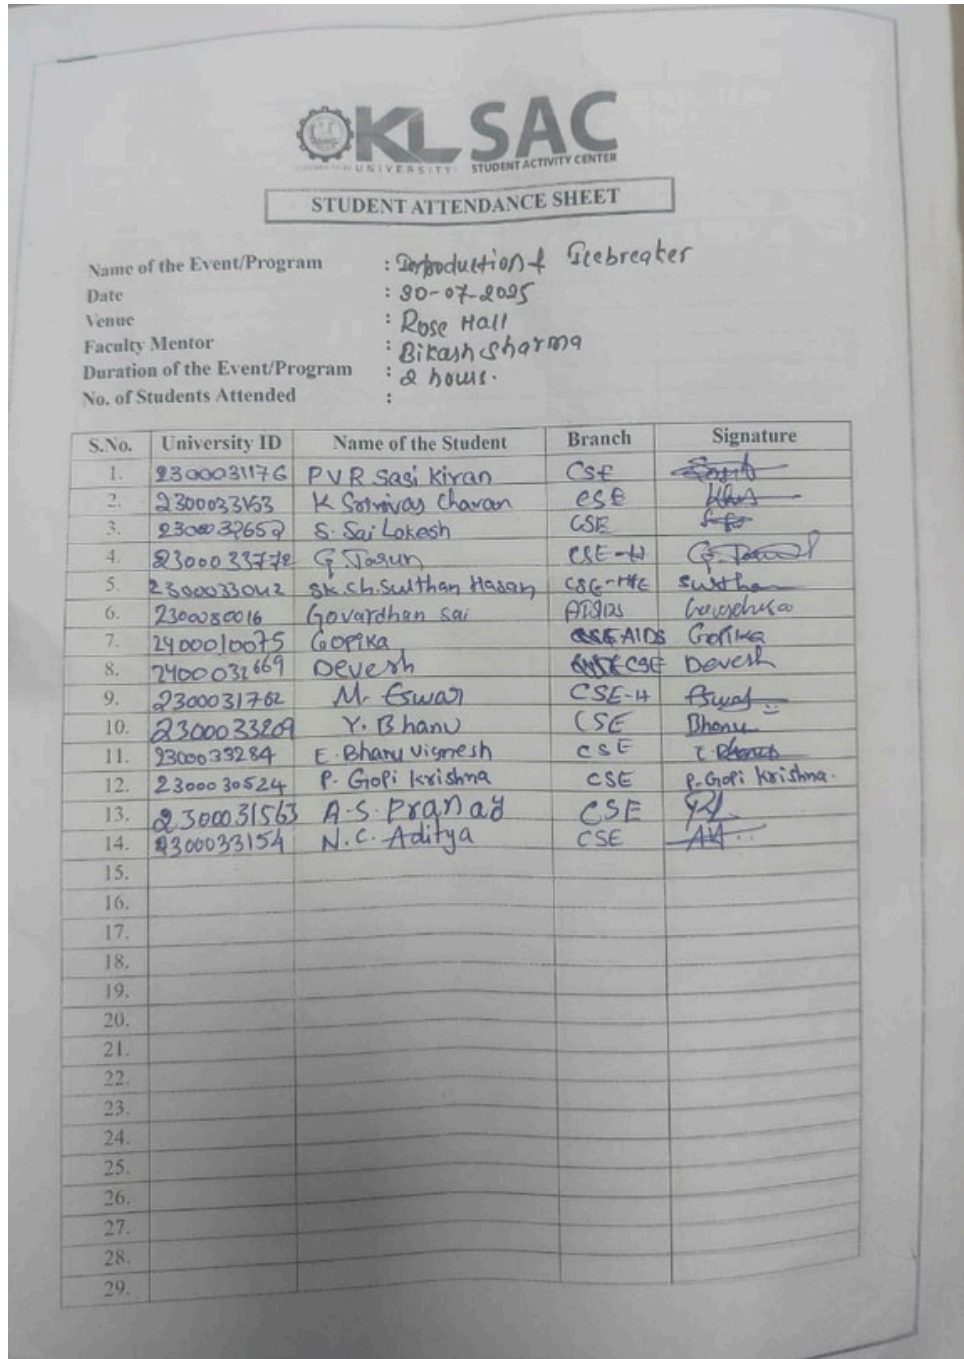 KL SAC
UNIVERSITY STUDENT ACTIVITY CENTER
STUDENT ATTENDANCE SHEET
Name of the Event/Program : Introduction & Icebreaker
Date : 30-07-2025
Venue : Rose Hall
Faculty Mentor : Bikash Sharma
Duration of the Event/Program : 2 hours.
No. of Students Attended :
S.No. University ID Name of the Student Branch Signature
1. 2300031176 PVR Sasi Kiran CSE
2. K Srinivas Charan CSE
3. S. Sai Lokesh CSE
4. 2300033772 G Tarun CSE-H
5. 2300033042 SK.Ch.Sulthan Hasan Sulthan
6. 2300080016 Govardhan Sai AIDS
7. 2400010075 Gopika AIDS Gopika
8. 2400032669 Devesh CSE Devesh
9. 2300031762 M. Eswar CSE-H Eswar
10. 2300033209 Y. Bhanu CSE Bhanu
11. 2300033284 E. Bhanu Vignesh CSE
12. 2300030524 P. Gopi Krishna CSE P. Gopi Krishna.
13. 2300031563 A.S. Pranay CSE
14. 2300033154 N.C. Aditya CSE
15.
16.
17.
18.
19.
20.
21.
22.
23.
24.
25.
26.
27.
28.
29.